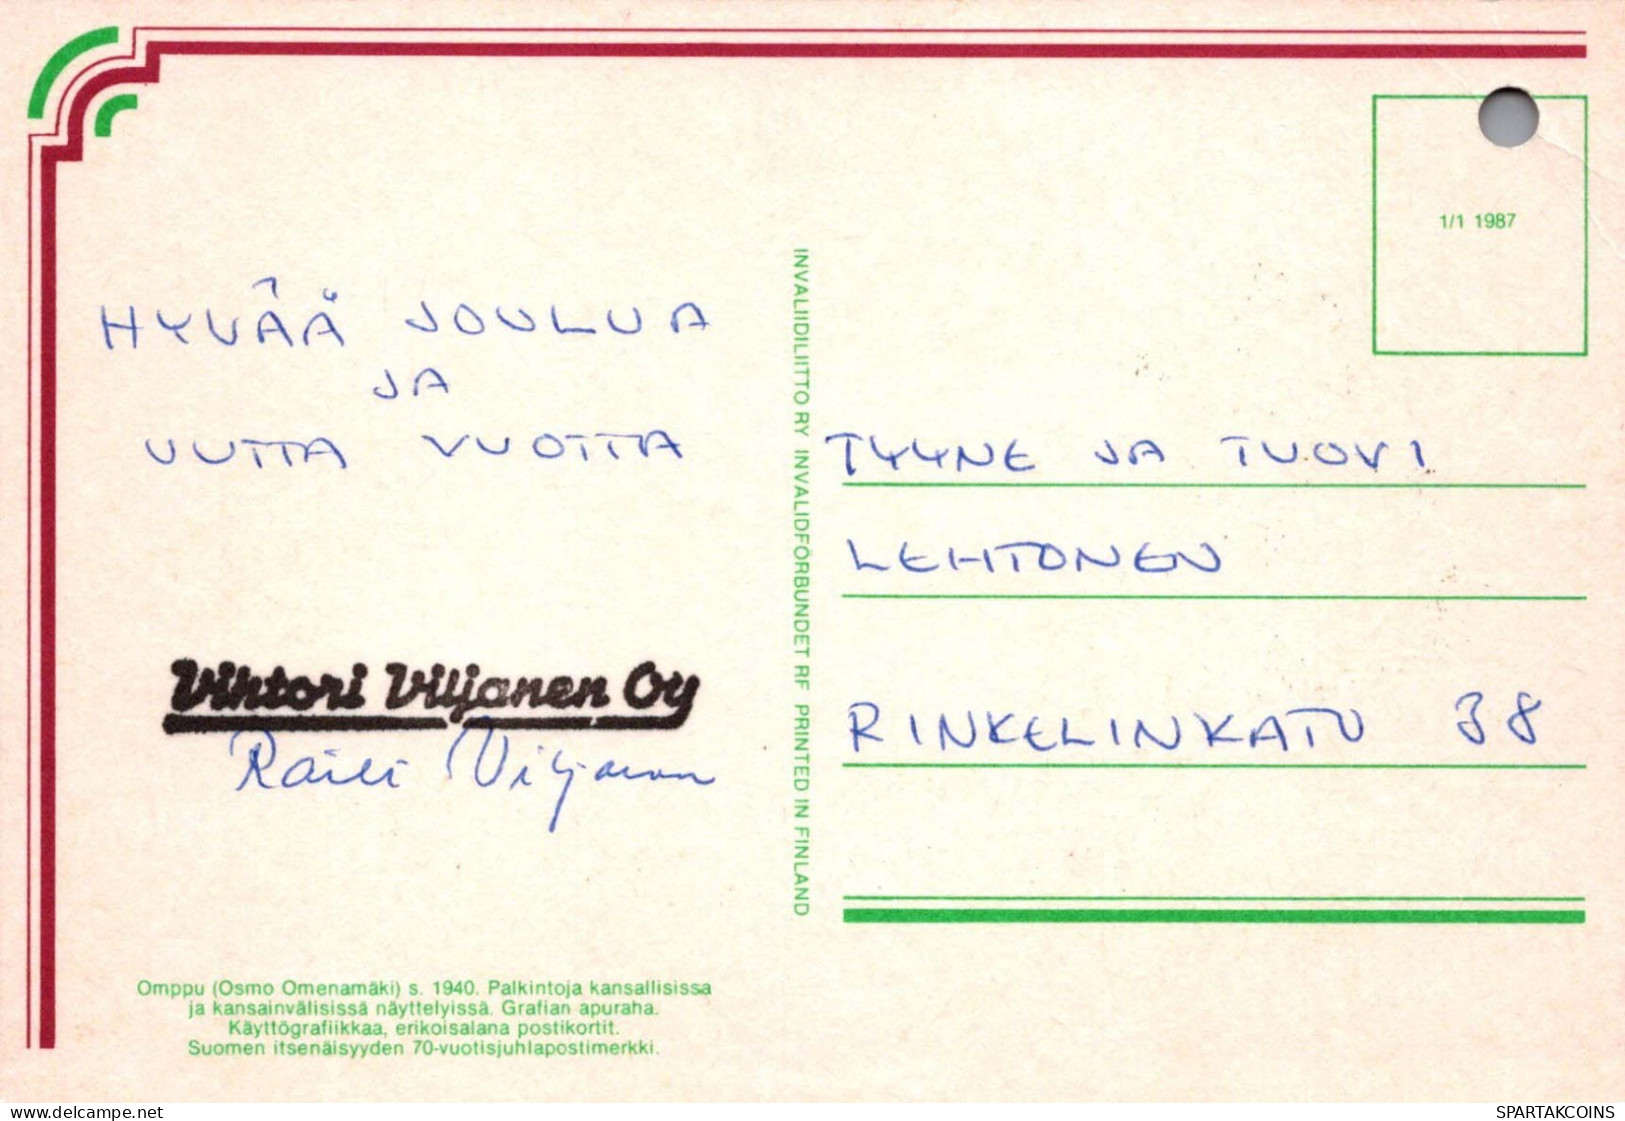 1/1 1987
HYVÄÄ JOULUA
JA
UUTTA VUOTTA
Vihtori Viljanen Oy
Raili Viljanen
INVALIIDILIITTO RY INVALIDFÖRBUNDET RF PRINTED IN FINLAND
TYYNE JA TUOVI
LEHTONEN
RINKELINKATU 38
Omppu (Osmo Omenamäki) s. 1940. Palkintoja kansallisissa
ja kansainvälisissä näyttelyissä. Grafian apuraha.
Käyttögrafiikkaa, erikoisalana postikortit.
Suomen itsenäisyyden 70-vuotisjuhlapostimerkki.
delcampe.net
SPARTAKCOINS